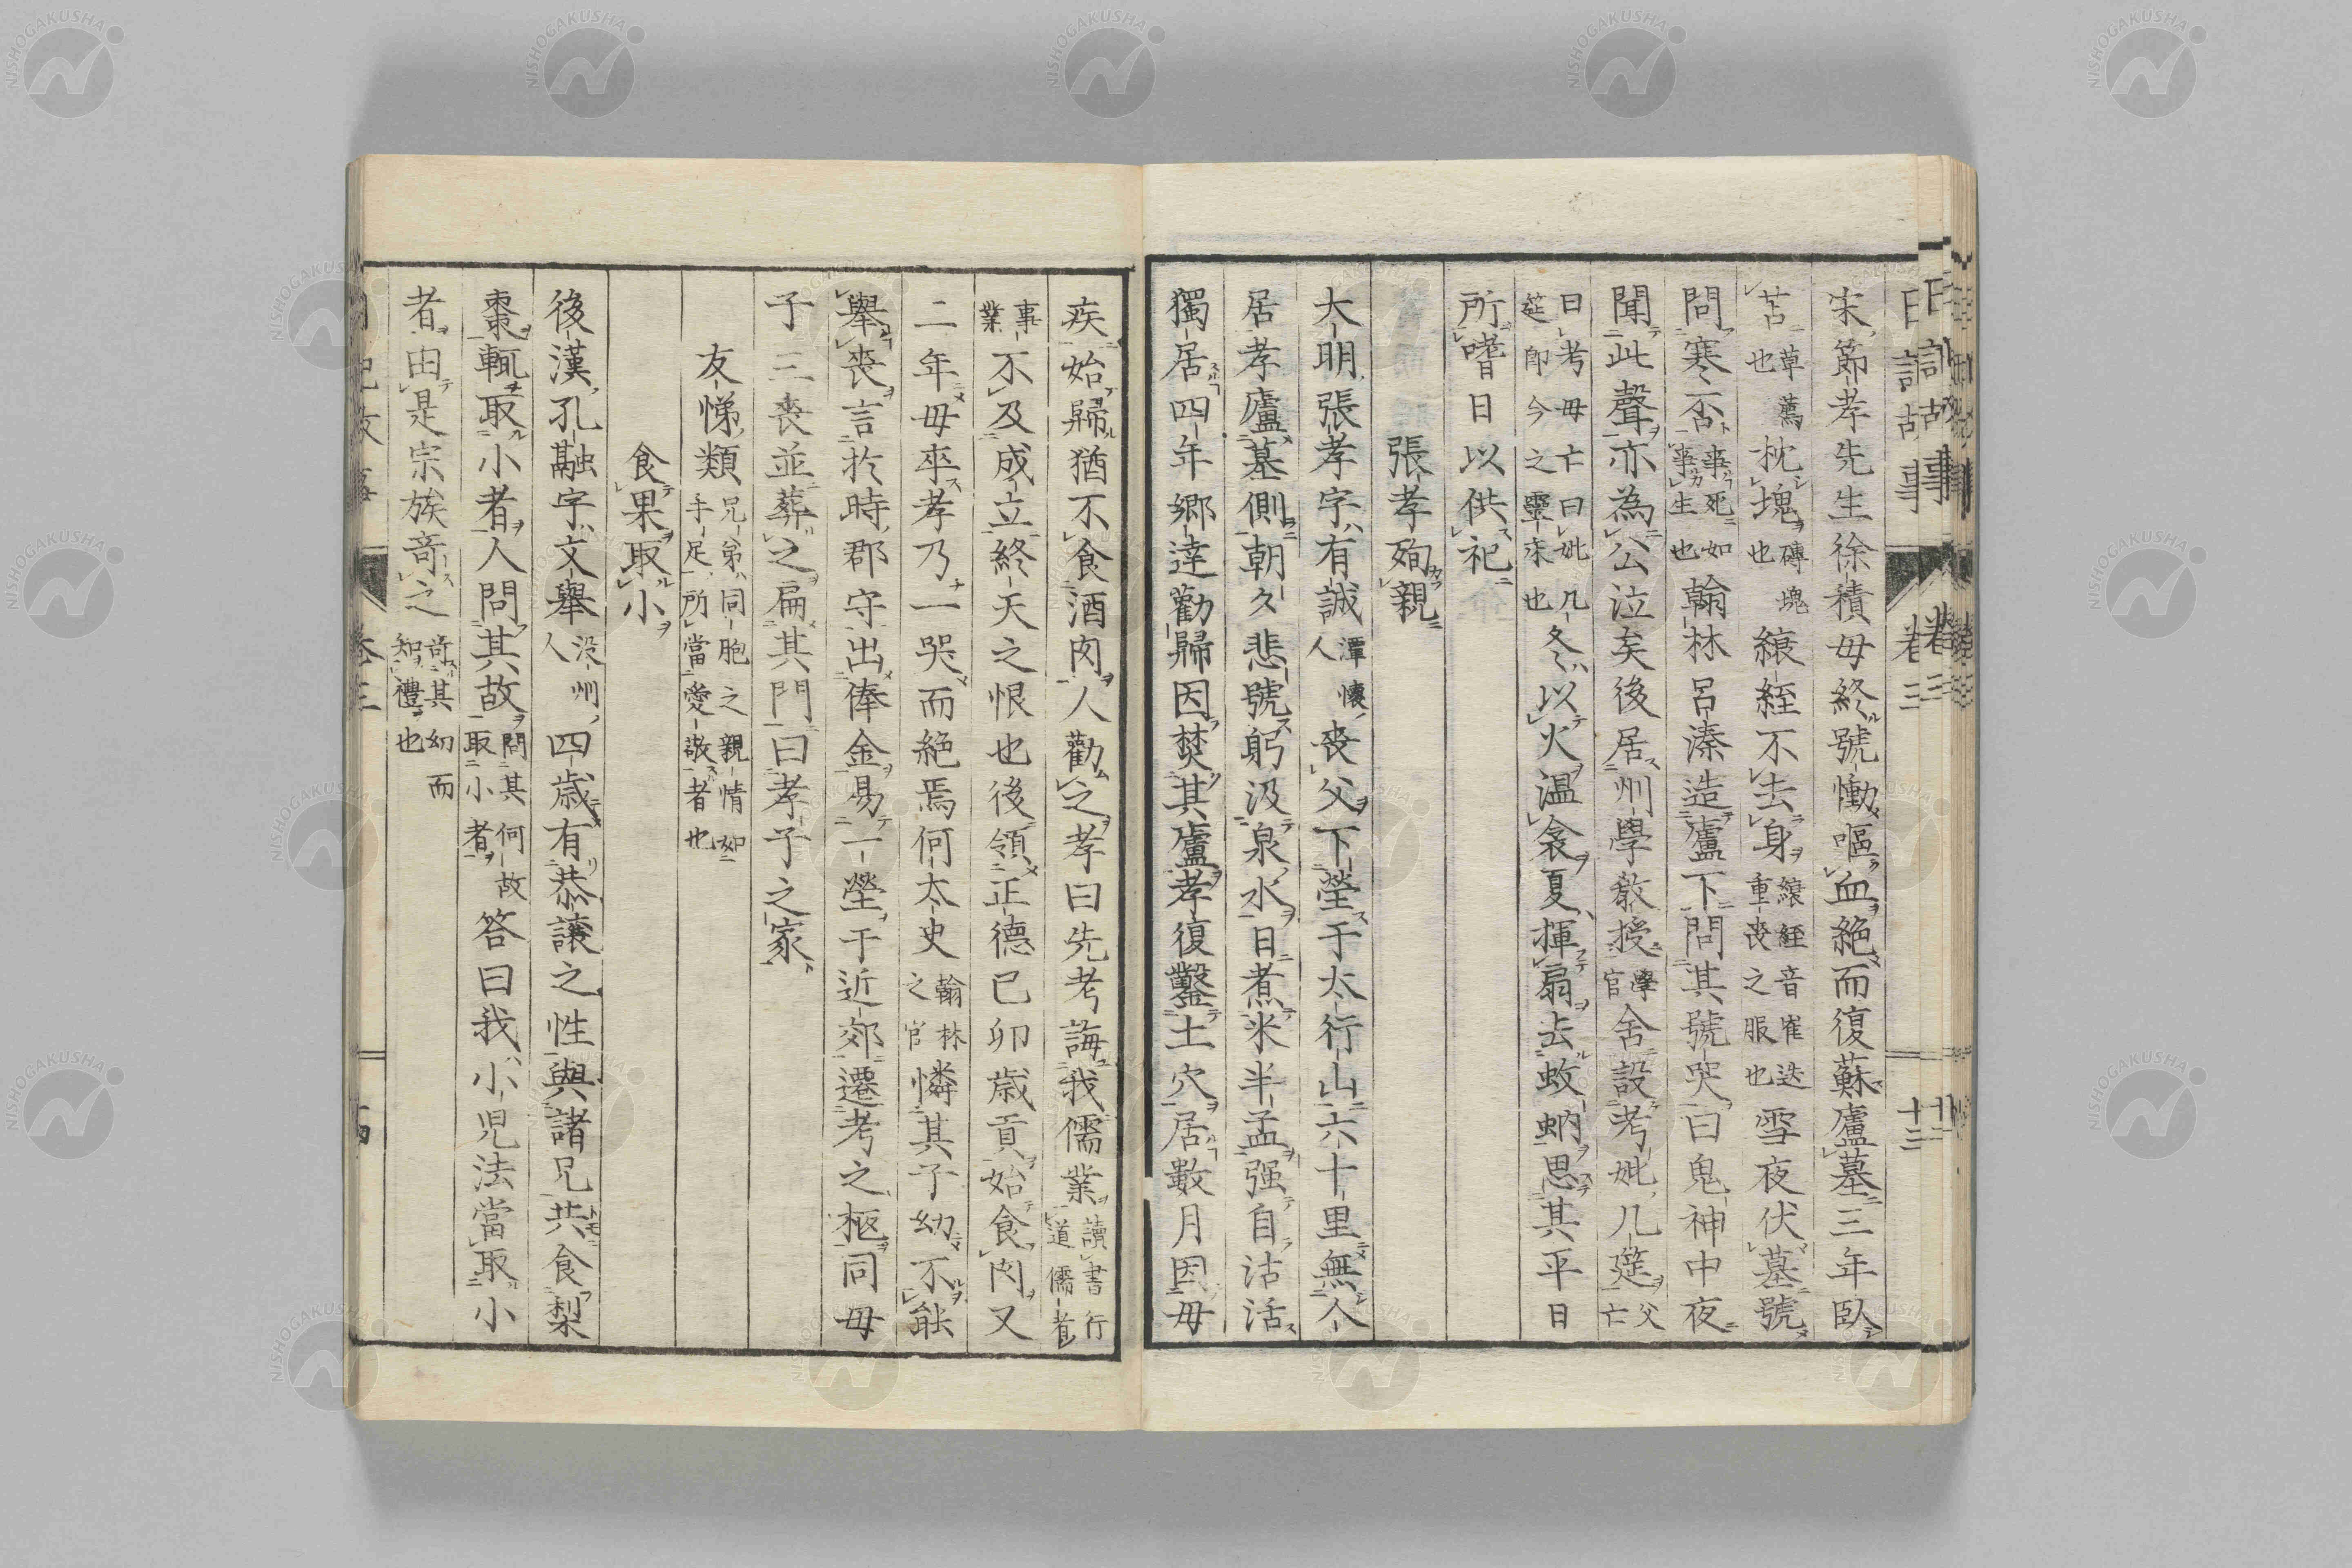 宋節孝先生徐積母終號慟嘔血絶而復蘇廬墓三年臥
苫草薦也枕塊磚塊也縗絰不去身縗絰音崔迭重喪之服也雪夜伏墓號
問寒否事死如事生也翰林呂溱造廬下問其號哭曰鬼神中夜
聞此聲亦為公泣矣後居州學敎授學官舍設考妣几筵父亡
曰考母亡曰妣几筵即今之靈床也冬以火温衾夏揮扇去蚊蚋思其平日
所嗜日以供祀
張孝殉親
大明張孝字有誠潭懷人喪父下塋于太行山六十里無人
居孝廬墓側朝夕悲號躬汲泉水日煮米半盂强自沽活
獨居四年鄉達勸歸因焚其廬孝復鑿土穴居数月因母
疾始歸猶不食酒肉人勸之孝曰先考誨我儒業讀書行道儒者
事業不及成立終天之恨也後領正德已卯歲貢始食肉又
二年母卒孝乃一哭而絶焉何太史翰林之官憐其子幼不能
舉喪言於時郡守出俸金易一塋于近郊遷考之柩同母
子三喪並葬之扁其門曰孝子之家
友悌類兄弟同胞之親情如手足所當愛敬者也
食果取小
後漢孔融字文舉没州人四歲有恭讓之性與諸兄共食梨
棗輒取小者人問其故問其何故取小者答曰我小兒法當取小
者由是宗族竒之竒其幼而知禮也
日記故事 卷三 十三